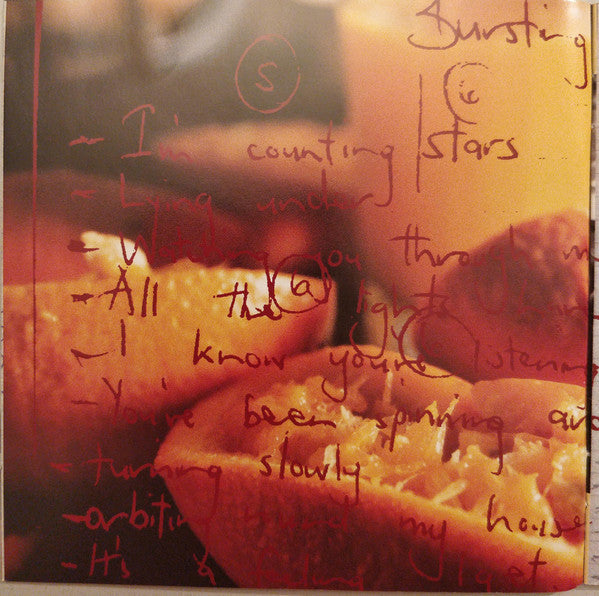 Bursting
S
- I'm counting stars
- Lying under
- you through m
- All the lights
a
- I know you're listening
- You've been spinning
- turning slowly
- orbiting my house
- It's I get